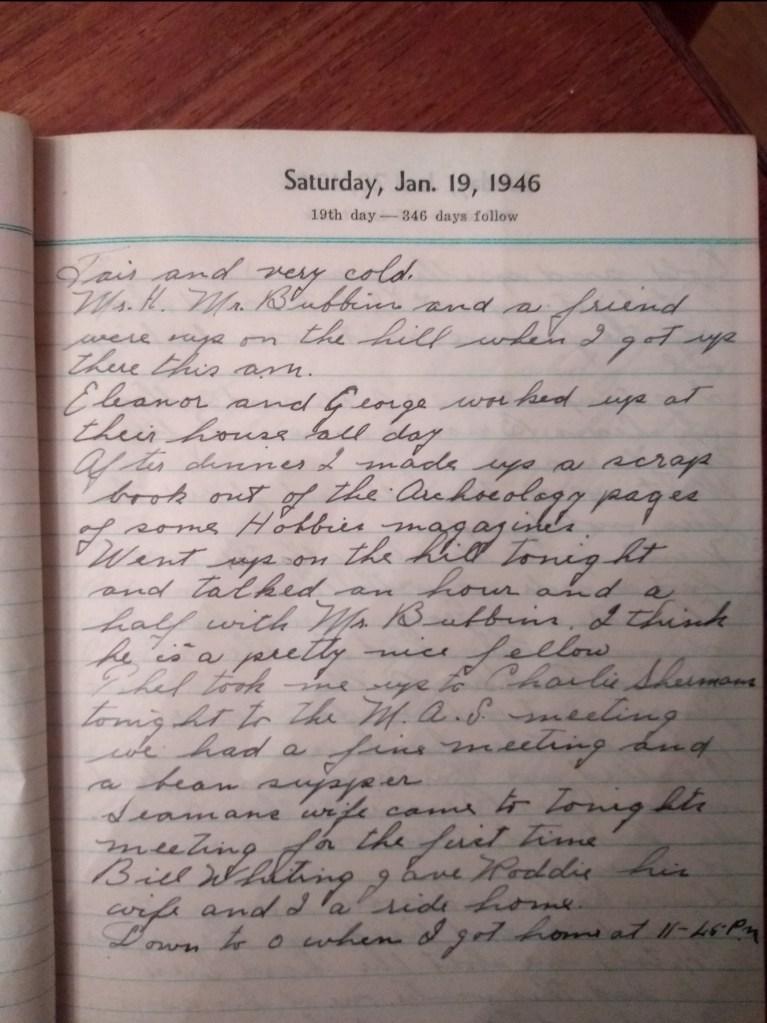 Saturday, Jan. 19, 1946
19th day — 346 days follow
Fair and very cold.
Mr. H. Mr. Bubbins and a friend
were up on the hill when I got up
there this am.
Eleanor and George worked up at
their house all day
After dinner I made up a scrap
book out of the Archoeology pages
of some Hobbies magazines.
Went up on the hill tonight
and talked an hour and a
half with Mr. Bubbins. I think
he is a pretty nice fellow
Phel took me up to Charlie Shermans
tonight to the M.A.S. meeting
we had a fine meeting and
a bean supper
Seamans wife came to tonights
meeting for the first time
Bill Whiting gave Roddie his
wife and I a ride home.
Down to 0 when I got home at 11-45-P.M